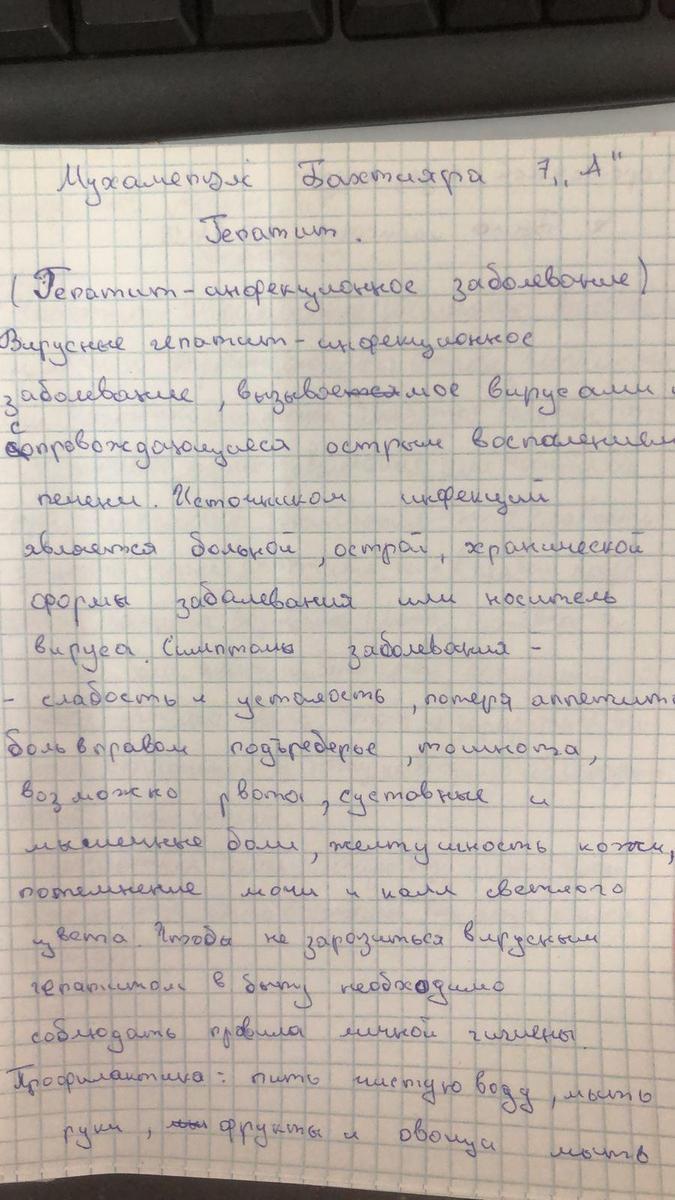 Бахтияра 7 „А"
Гепатит.
(Гепатит-инфекционное заболевание)
Вирусные гепатит-инфекционное
заболевание, вызываемое вирусами и
сопровождающиеся острым воспалением
печени. Источником инфекций
является больной, острай, хранической
формы забалевания или носитель
вируса. Симптомы заболевания -
- слабость и усталость, потеря аппетита
боль в правом подъреберье, тошнота,
возможно рвота, суставные и
мышечные боли, желтушность кожи,
потемнение мочи и калл светлого
цвета. Чтобы не заразиться вирусным
гепатитом в быту необходимо
соблюдать правила личной гигиены.
Профилактика: пить чистую воду, мыть
руки, фрукты и овощи мыть